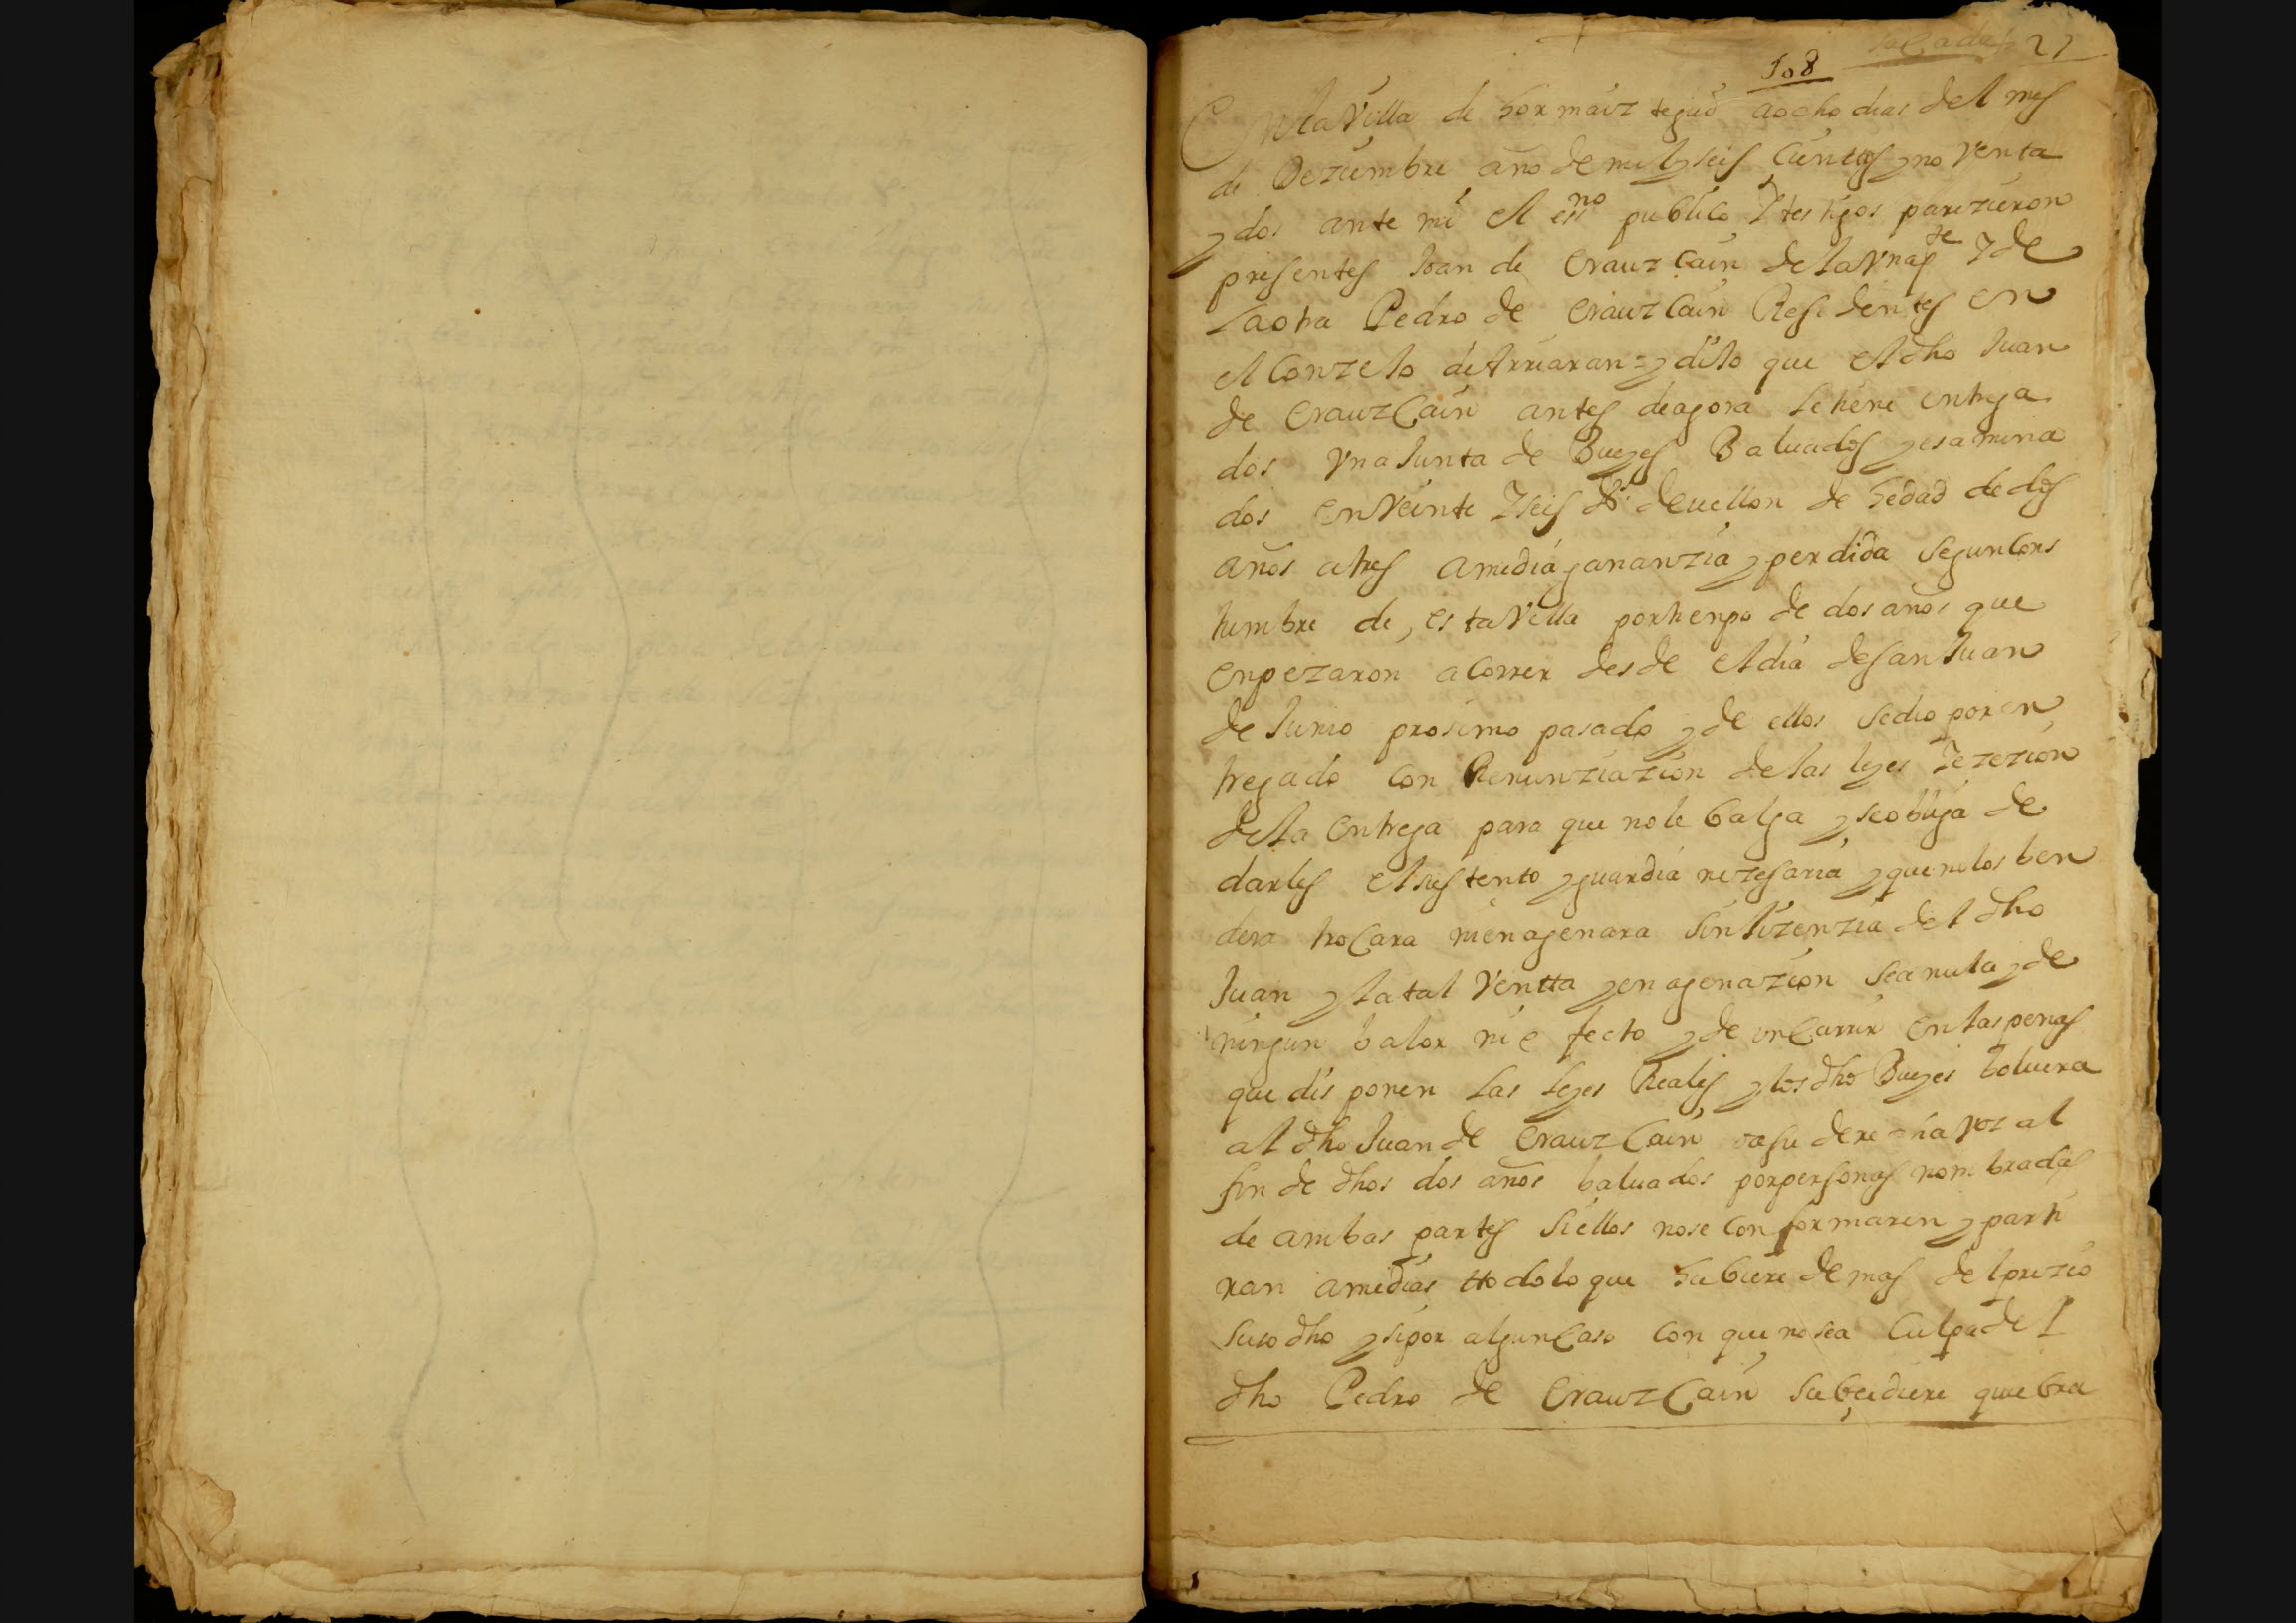 sacada 27
108
En la Villa de hormaiztegui a ocho dias del mes
de Deziembre año de mil y seis cientos y no venta
y dos ante mi el essno publico Y testigos parezieron
presentes Joan de Crauzcain de la Vna pte Y de
la otra Pedro de Crauzcain Residentes en
el Conzejo de Arriaran = y dijo que el dho Juan
de CrauzCain antes de agora le tiene entrega
dos Vna Junta de Bueyes Baluados y esamina
dos en Veinte Y seis ds de vellon de hedad de dos
años a tres a media ganancia y perdida segun cons
tumbre de esta Villa por tienpo de dos años que
enpezaron a Correr desde el dia de san Juan
de Junio prosimo pasado y de ellos se dio por en
tregado con Renunziazion de las leyes Y ezezion
de la entrega para que no le balga y se obliga de
darles el sustento y guardia nezesaria y que no los ben
dera troCara ni enagenara sin lizenzia del dho
Juan y la tal Ventta y enagenazion sea nula y de
ningun balor ni efecto y de inCurrir en las penas
que disponen las leyes Reales y los dhos Bueyes boluera
al dho Juan de CrauzCain o a su derecha voz al
fin de dhos dos años baluados por personas nombradas
de ambas partes si ellos no se conformaren y parti
ran a medias ttodo lo que hubiere de mas del prezio
suso dho y si por algun Caso con que no sea Culpa del
dho Pedro de CrauzCain subcediere quiebra